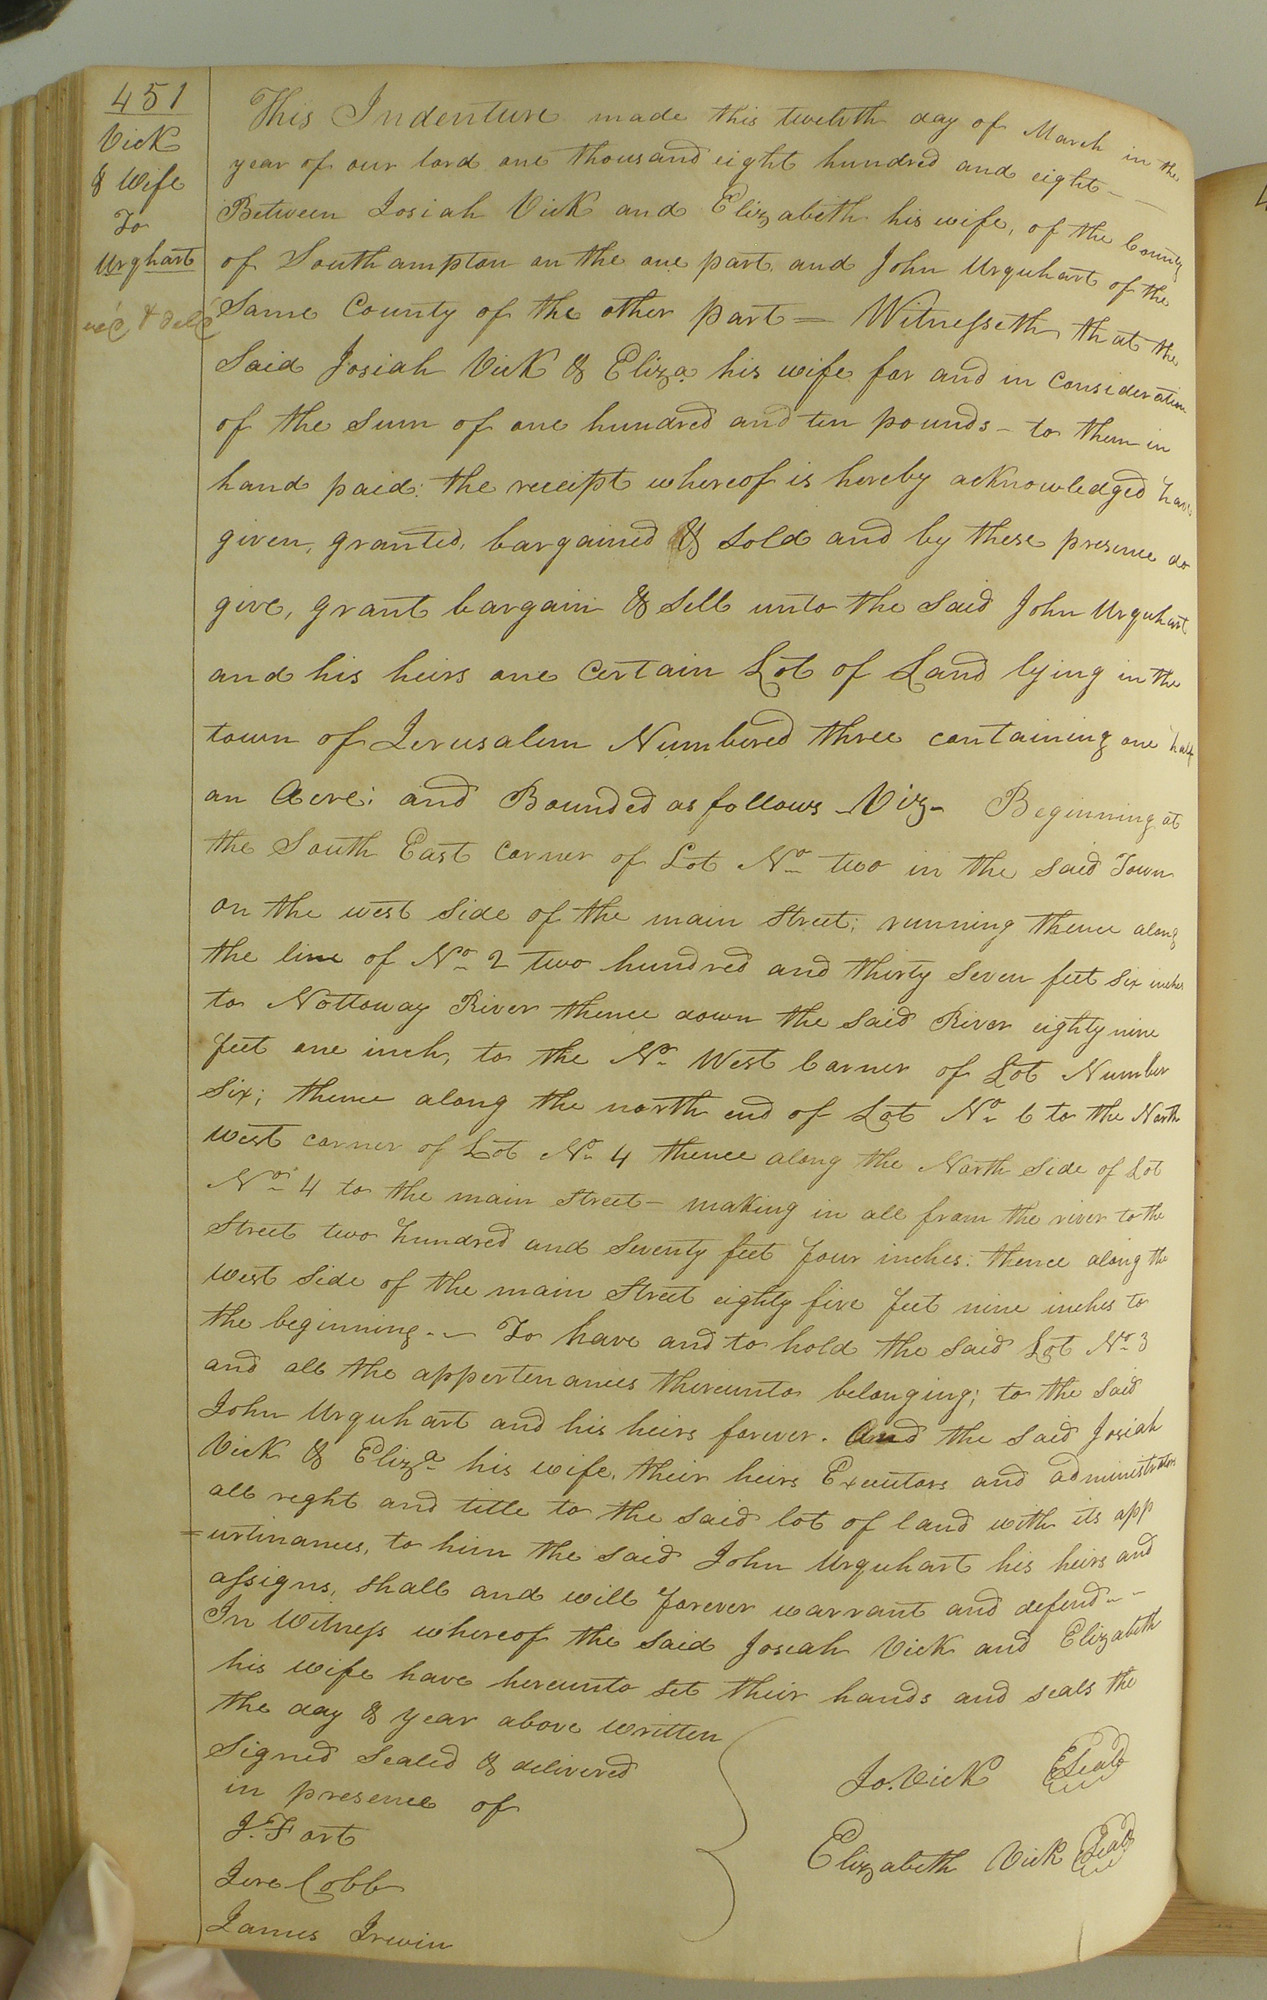 451
Vick
& Wife
To
Urghart
This Indenture made this twelvth day of March in the
year of our lord one thousand eight hundred and eight —
Between Josiah Vick and Elizabeth his wife, of the County
of Southampton on the one part, and John Urquhart of the
Same County of the other part — Witnesseth that the
Said Josiah Vick & Eliza. his wife for and in consideration
of the Sum of one hundred and ten pounds – to them in
hand paid; the receipt whereof is hereby acknowledged have
given, granted, bargained & sold and by these presence do
give, grant bargain & sell unto the said John Urquhart
and his heirs one certain Lot of Land lying in the
town of Jerusalem Numbered three containing one half
an Acre; and Bounded as follows Viz – Beginning at
the South East corner of Lot No. two in the said Town
on the west side of the main street; running thence along
the line of No. 2 two hundred and thirty seven feet six inches
to Nottoway River thence down the said River eighty nine
feet one inch, to the No. West Corner of Lot Number
Six; thence along the north end of Lot No. 6 to the North
West corner of Lot No. 4 thence along the North Side of Lot
No. 4 to the main street – making in all from the river to the
Street two hundred and Seventy feet four inches; thence along the
west side of the main Street eighty five feet nine inches to
the beginning. – To have and to hold the said Lot No. 3
and all the appertenances thereunto belonging; to the said
John Urquhart and his heirs forever. And the said Josiah
Vick & Eliza. his wife, their heirs Executors and administrators
all reght and title to the said lot of land with its app
=urtinances, to him the said John Urquhart his heirs and
assigns, shall and will forever warrant and defend –
In Witness whereof the said Josiah Vick and Elizabeth
his wife have hereunto set their hands and seals the
the day & year above written
Signed sealed & delivered
in presence of
J. Fort
Jere Cobb
James Irwin
Jo. Vick Seal
Elizabeth Vick Seal